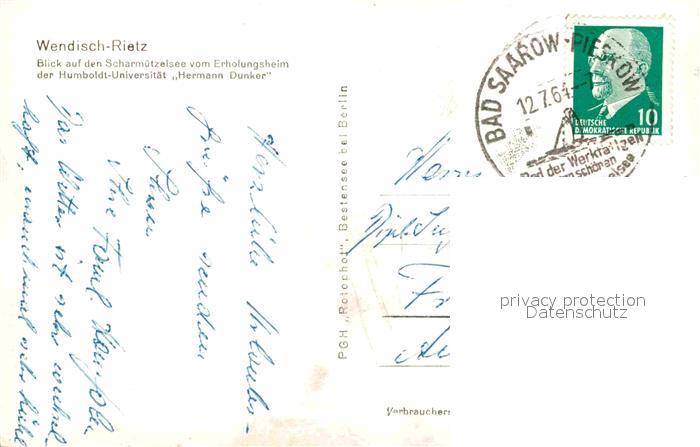 Wendisch-Rietz
Blick auf den Scharmützelsee vom Erholungsheim
der Humboldt-Universität „Hermann Dunker"
Herzliche Urlaubs-
grüße senden
Ihnen
Ihre Faml.
Das Wetter ist sehr wechsel-
haft, manchmal sehr kühl
PGH „Rotophot", Bestensee bei Berlin
BAD SAAROW-PIESKOW
12.7.64
Bad der Werktätigen
schönen
10
DEUTSCHE
DEMOKRATISCHE REPUBLIK
Herrn
Verbraucher
privacy protection
Datenschutz